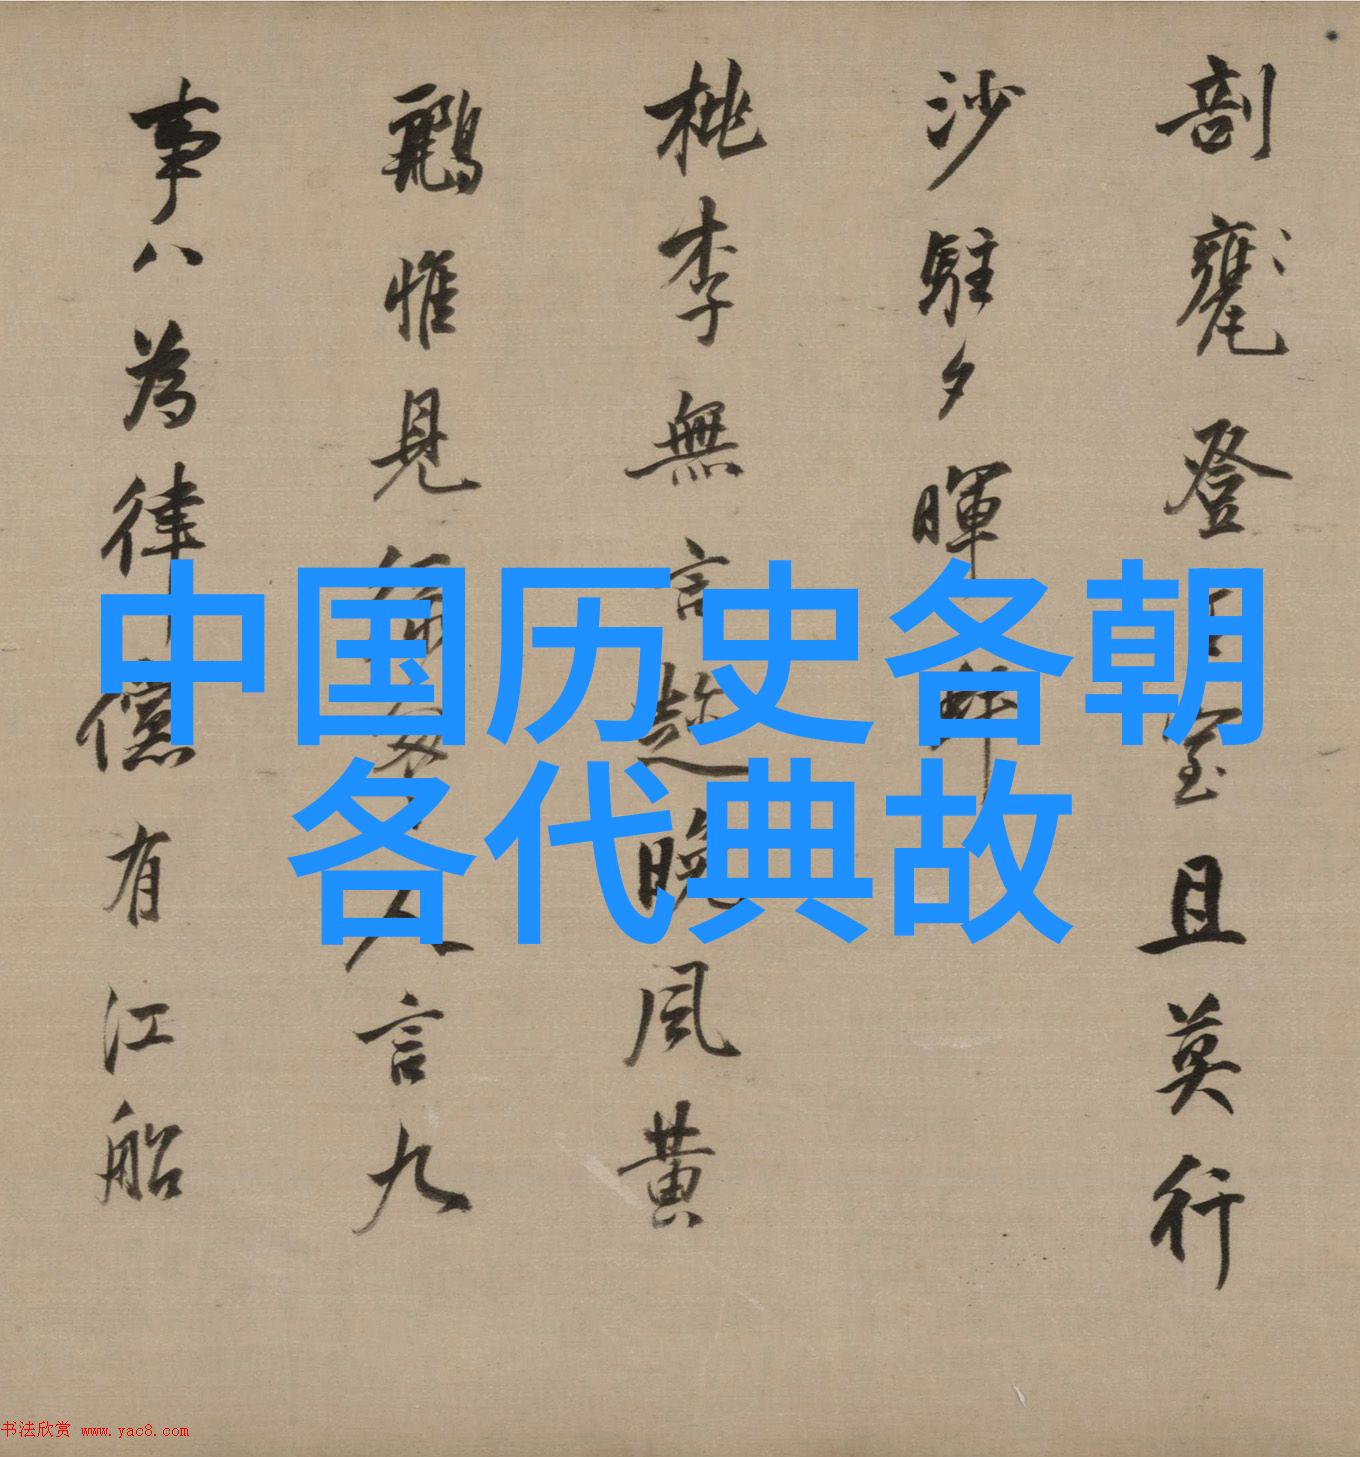 剖甕登
且莫行
沙駐夕暉
桃李無言
晚風黃
鸝惟見
人言九
事八為律
儻有江船
中国历史各朝
各代典故
书法欣赏 www.yac8.com